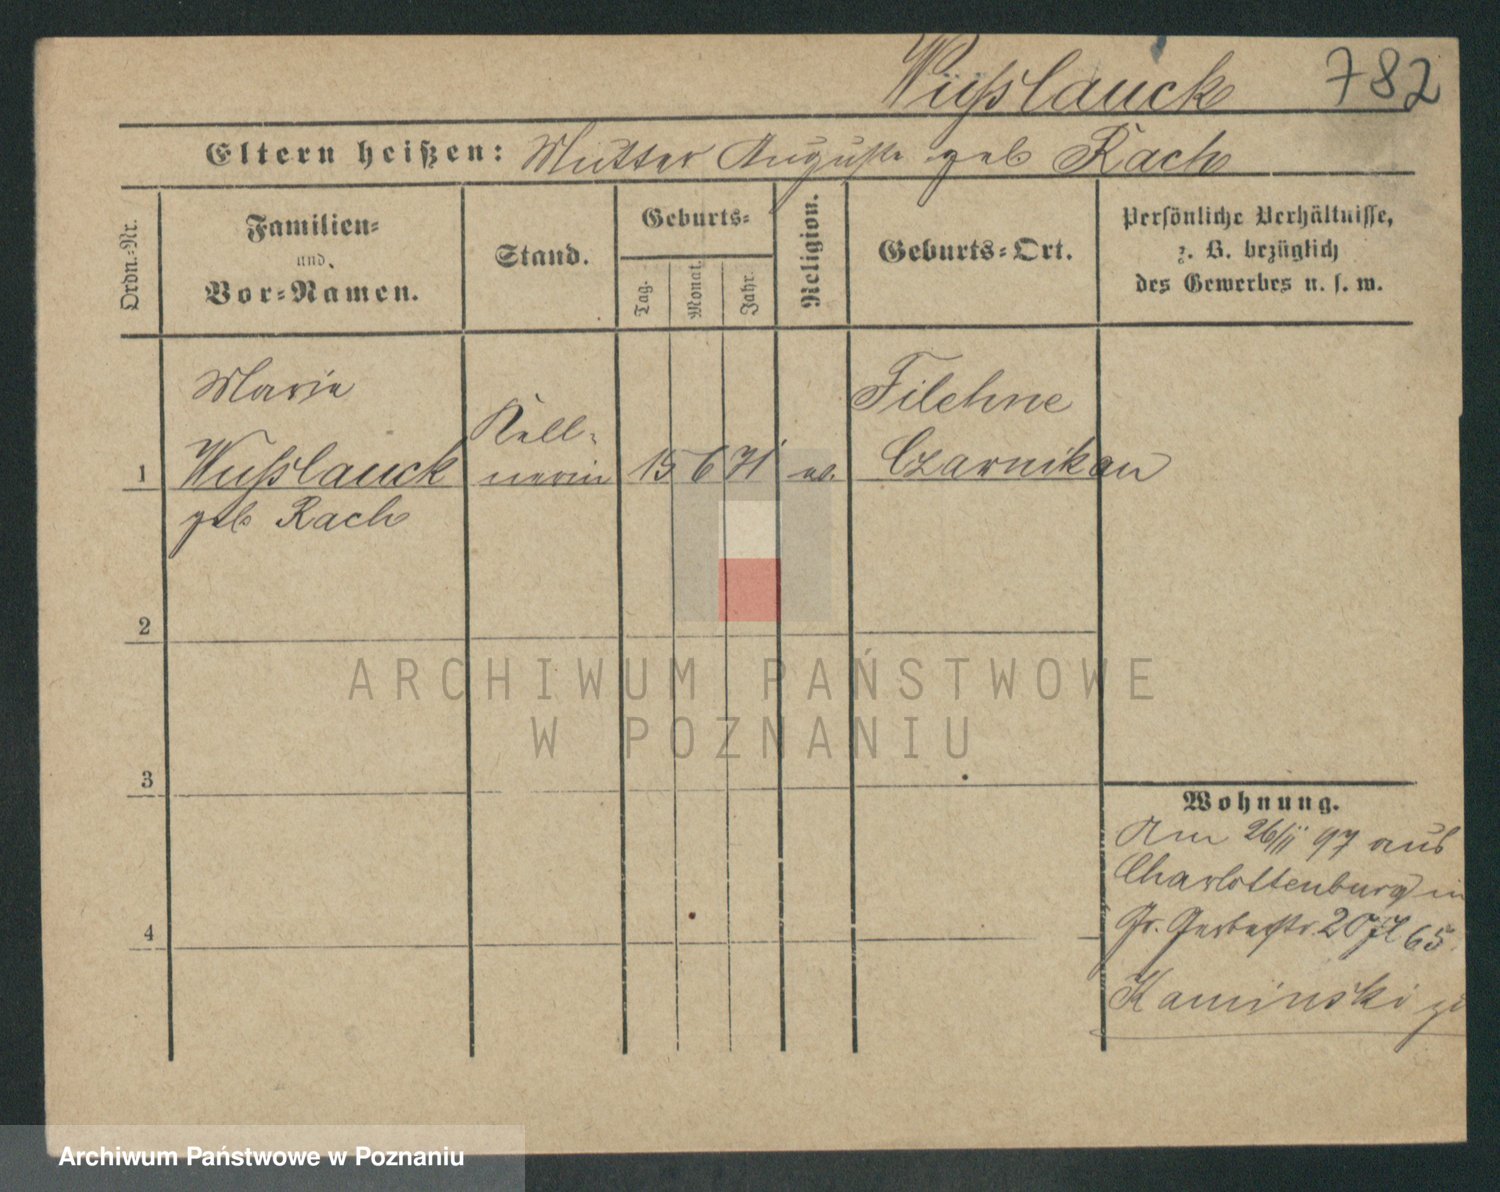 Wüßlauck 782
Eltern heißen: Mutter Auguste geb Rach
Ordn.-Nr.
Familien-
und
Vor-Namen.
Stand.
Geburts-
Tag.
Monat.
Jahr.
Religion.
Geburts-Ort.
Persönliche Verhältnisse,
z. B. bezüglich
des Gewerbes u. s. w.
Marie
Kell-
Filehne
1 Wußlauck nerin 15 6 71 ev. Czarnikau
geb Rach
2
ARCHIWUM PAŃSTWOWE
W POZNANIU
3
Wohnung.
Am 26/II 97 aus
Charlottenburg in
Gr. Gerberstr. 20 65.
4
Kaminski
Archiwum Państwowe w Poznaniu